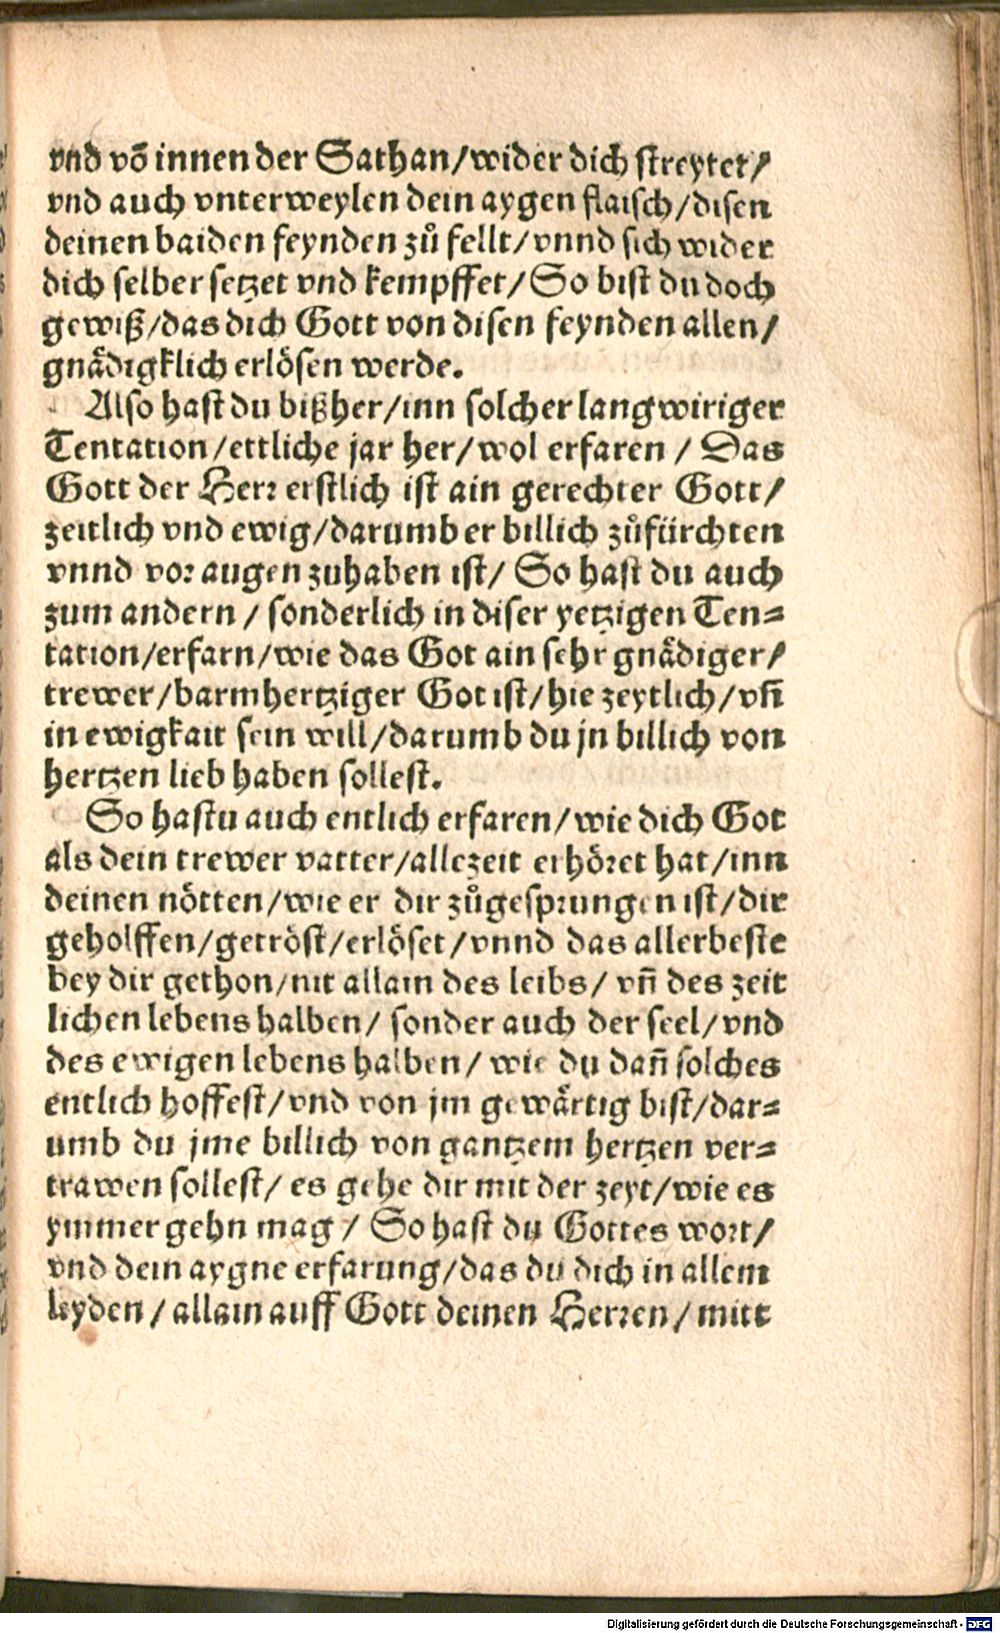 vnd võ innen der Sathan/wider dich streytet/
vnd auch vnterweylen dein aygen flaisch/disen
deinen baiden feynden zů fellt/vnnd sich wider
dich selber setzet vnd kempffet/So bist du doch
gewiß/das dich Gott von disen feynden allen/
gnädigklich erlösen werde.
Also hast du bißher/inn solcher langwiriger
Tentation/ettliche jar her/wol erfaren / Das
Gott der Herr erstlich ist ain gerechter Gott/
zeitlich vnd ewig/darumb er billich zůfürchten
vnnd vor augen zuhaben ist/ So hast du auch
zum andern / sonderlich in diser yetzigen Ten=
tation/erfarn/wie das Got ain sehr gnädiger/
trewer/barmhertziger Got ist/hie zeytlich/vñ
in ewigkait sein will/darumb du jn billich von
hertzen lieb haben sollest.
So hastu auch entlich erfaren/wie dich Got
als dein trewer vatter/allezeit erhöret hat/inn
deinen nötten/wie er dir zůgesprungen ist/dir
geholffen/getröst/erlöset/vnnd das allerbeste
bey dir gethon/nit allain des leibs/ vñ des zeit
lichen lebens halben/ sonder auch der seel/vnd
des ewigen lebens halben/ wie du dañ solches
entlich hoffest/vnd von jm gewärtig bist/dar=
umb du jme billich von gantzem hertzen ver=
trawen sollest/ es gehe dir mit der zeyt/wie es
ymmer gehn mag / So hast du Gottes wort/
vnd dein aygne erfarung/das du dich in allem
leyden / allain auff Gott deinen Herren / mitt
Digitalisierung gefördert durch die Deutsche Forschungsgemeinschaft - DFG